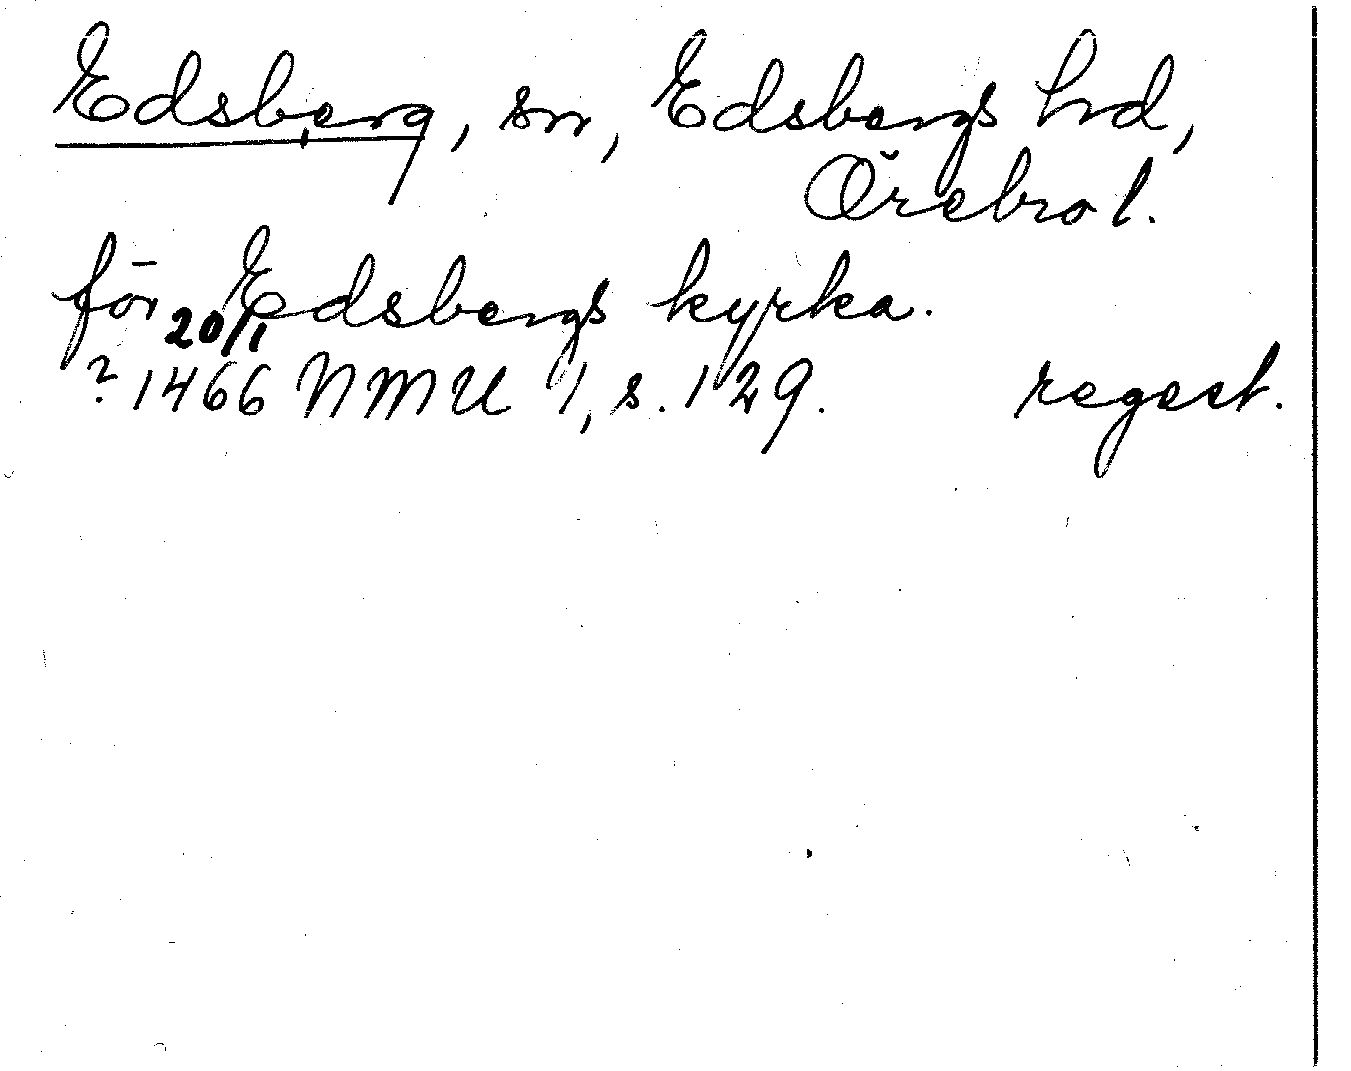 Edsberg, sn, Edsbergs hd,
Örebro l.
för Edsbergs kyrka.
20/1
? 1466 NMU 1, s. 129. regest.